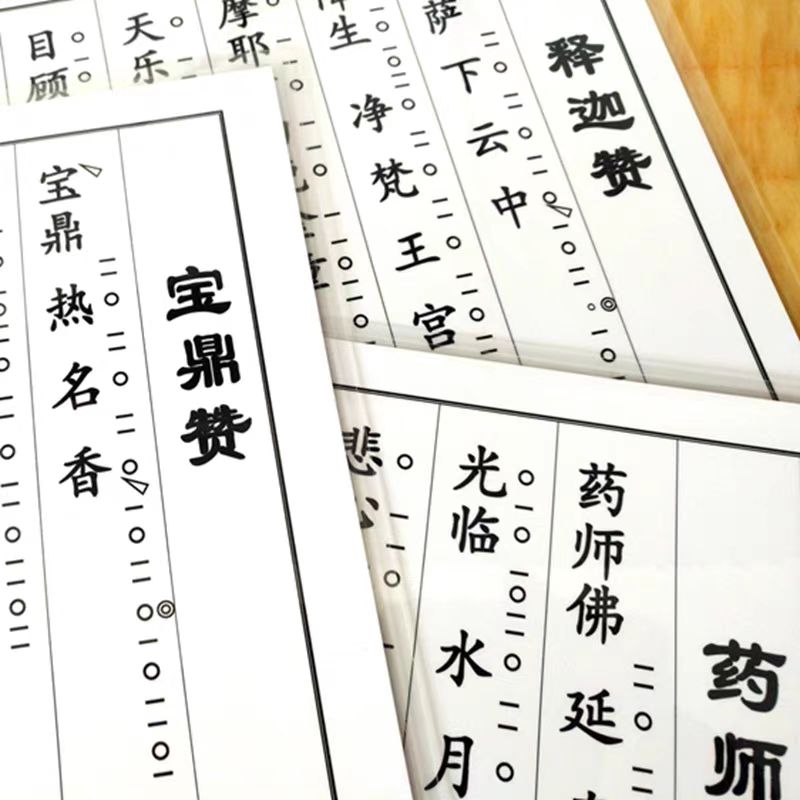 释迦赞
萨下云中
生净梵王宫
摩耶
天乐
目顾
宝鼎赞
宝鼎热名香
药师
药师佛延
光临水月
悲心